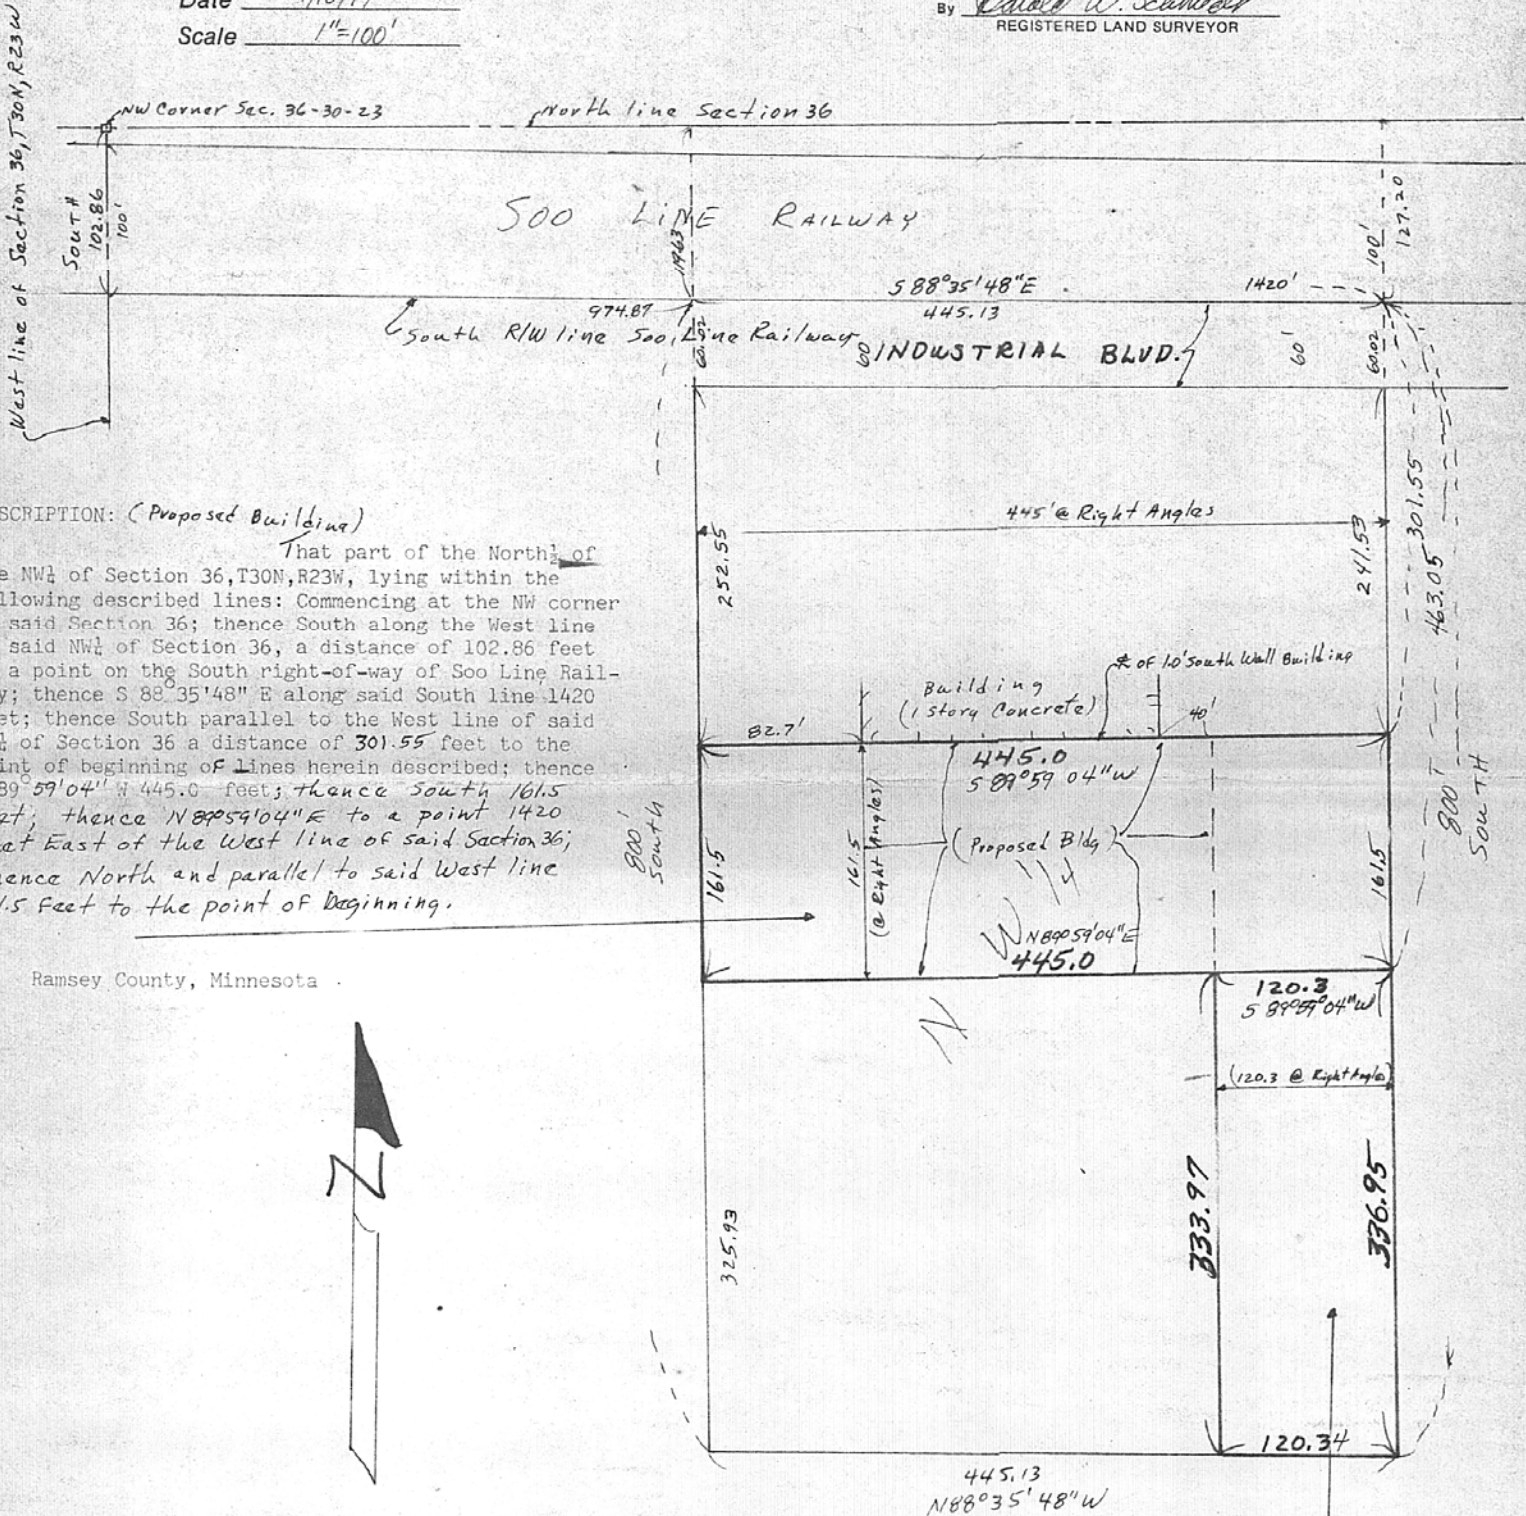 Date
Scale 1"=100'
By Harold W.
REGISTERED LAND SURVEYOR
West line of Section 36, T30N, R23W
NW Corner Sec. 36-30-23
North line Section 36
SOUTH
102.86
100'
SOO LINE RAILWAY
119.63
100'
127.20
S 88°35'48" E
1420'
974.87
445.13
South R/W line Soo Line Railway
60.02
60' INDUSTRIAL BLVD.
60'
60.02
SCRIPTION: (Proposed Building)
That part of the North½ of
e NW¼ of Section 36,T30N,R23W, lying within the
llowing described lines: Commencing at the NW corner
said Section 36; thence South along the West line
said NW¼ of Section 36, a distance of 102.86 feet
a point on the South right-of-way of Soo Line Rail-
y; thence S 88°35'48" E along said South line 1420
et; thence South parallel to the West line of said
¼ of Section 36 a distance of 301.55 feet to the
int of beginning of lines herein described; thence
89°59'04" W 445.0 feet; thence South 161.5
et; thence N 89°59'04" E to a point 1420
et East of the West line of said Section 36;
ence North and parallel to said West line
1.5 feet to the point of beginning.
Ramsey County, Minnesota
445' @ Right Angles
252.55
241.53
301.55
463.05
800'
SOUTH
℄ of 1.0' South Wall Building
Building
(1 story Concrete)
82.7'
40'
445.0
S 89°59'04" W
800'
South
161.5
161.5
(@ Right Angles)
(Proposed Bldg)
161.5
N 89°59'04" E
445.0
120.3
S 89°59'04" W
(120.3 @ Right Angles)
N
325.93
333.97
336.95
120.34
445.13
N 88°35'48" W